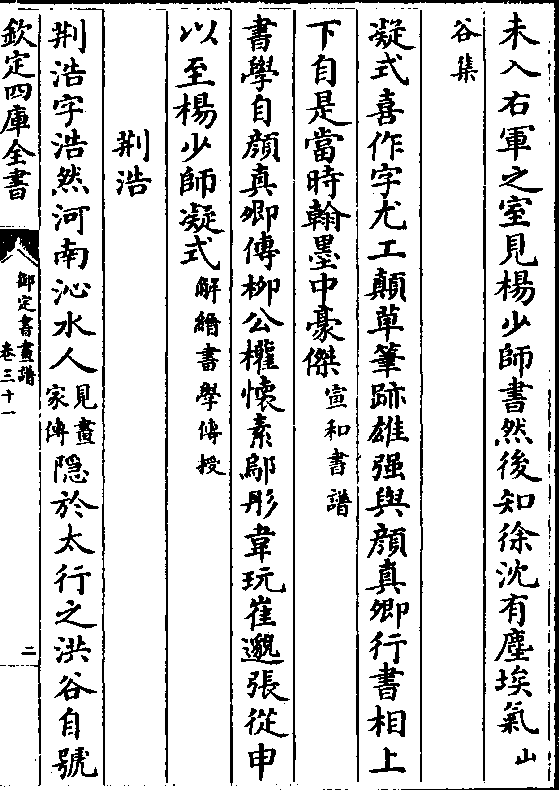 未入右軍之室見楊少師書然後知徐沈有塵埃氣山
谷集
凝式喜作字尤工顛草筆跡雄强與顔真卿行書相上
下自是當時翰墨中豪傑宣和書譜
書學自顔真卿傳柳公權懷素鄔彤韋玩崔邈張從申
以至楊少師凝式解縉書學傳授
荆浩
荆浩字浩然河南沁水人見畫家傳隠於太行之洪谷自號
欽定四庫全書
御定書畫譜
卷三十一
二